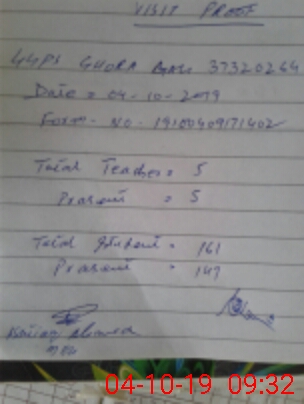 VISIT PROOF
GGPS GHORA GALI 37320264
Date = 04-10-2019
Form - No - 19100409171402
Total Teacher = 5
Prasent = 5
Total Student = 161
Prasent = 147
Ahmed
04-10-19 09:32